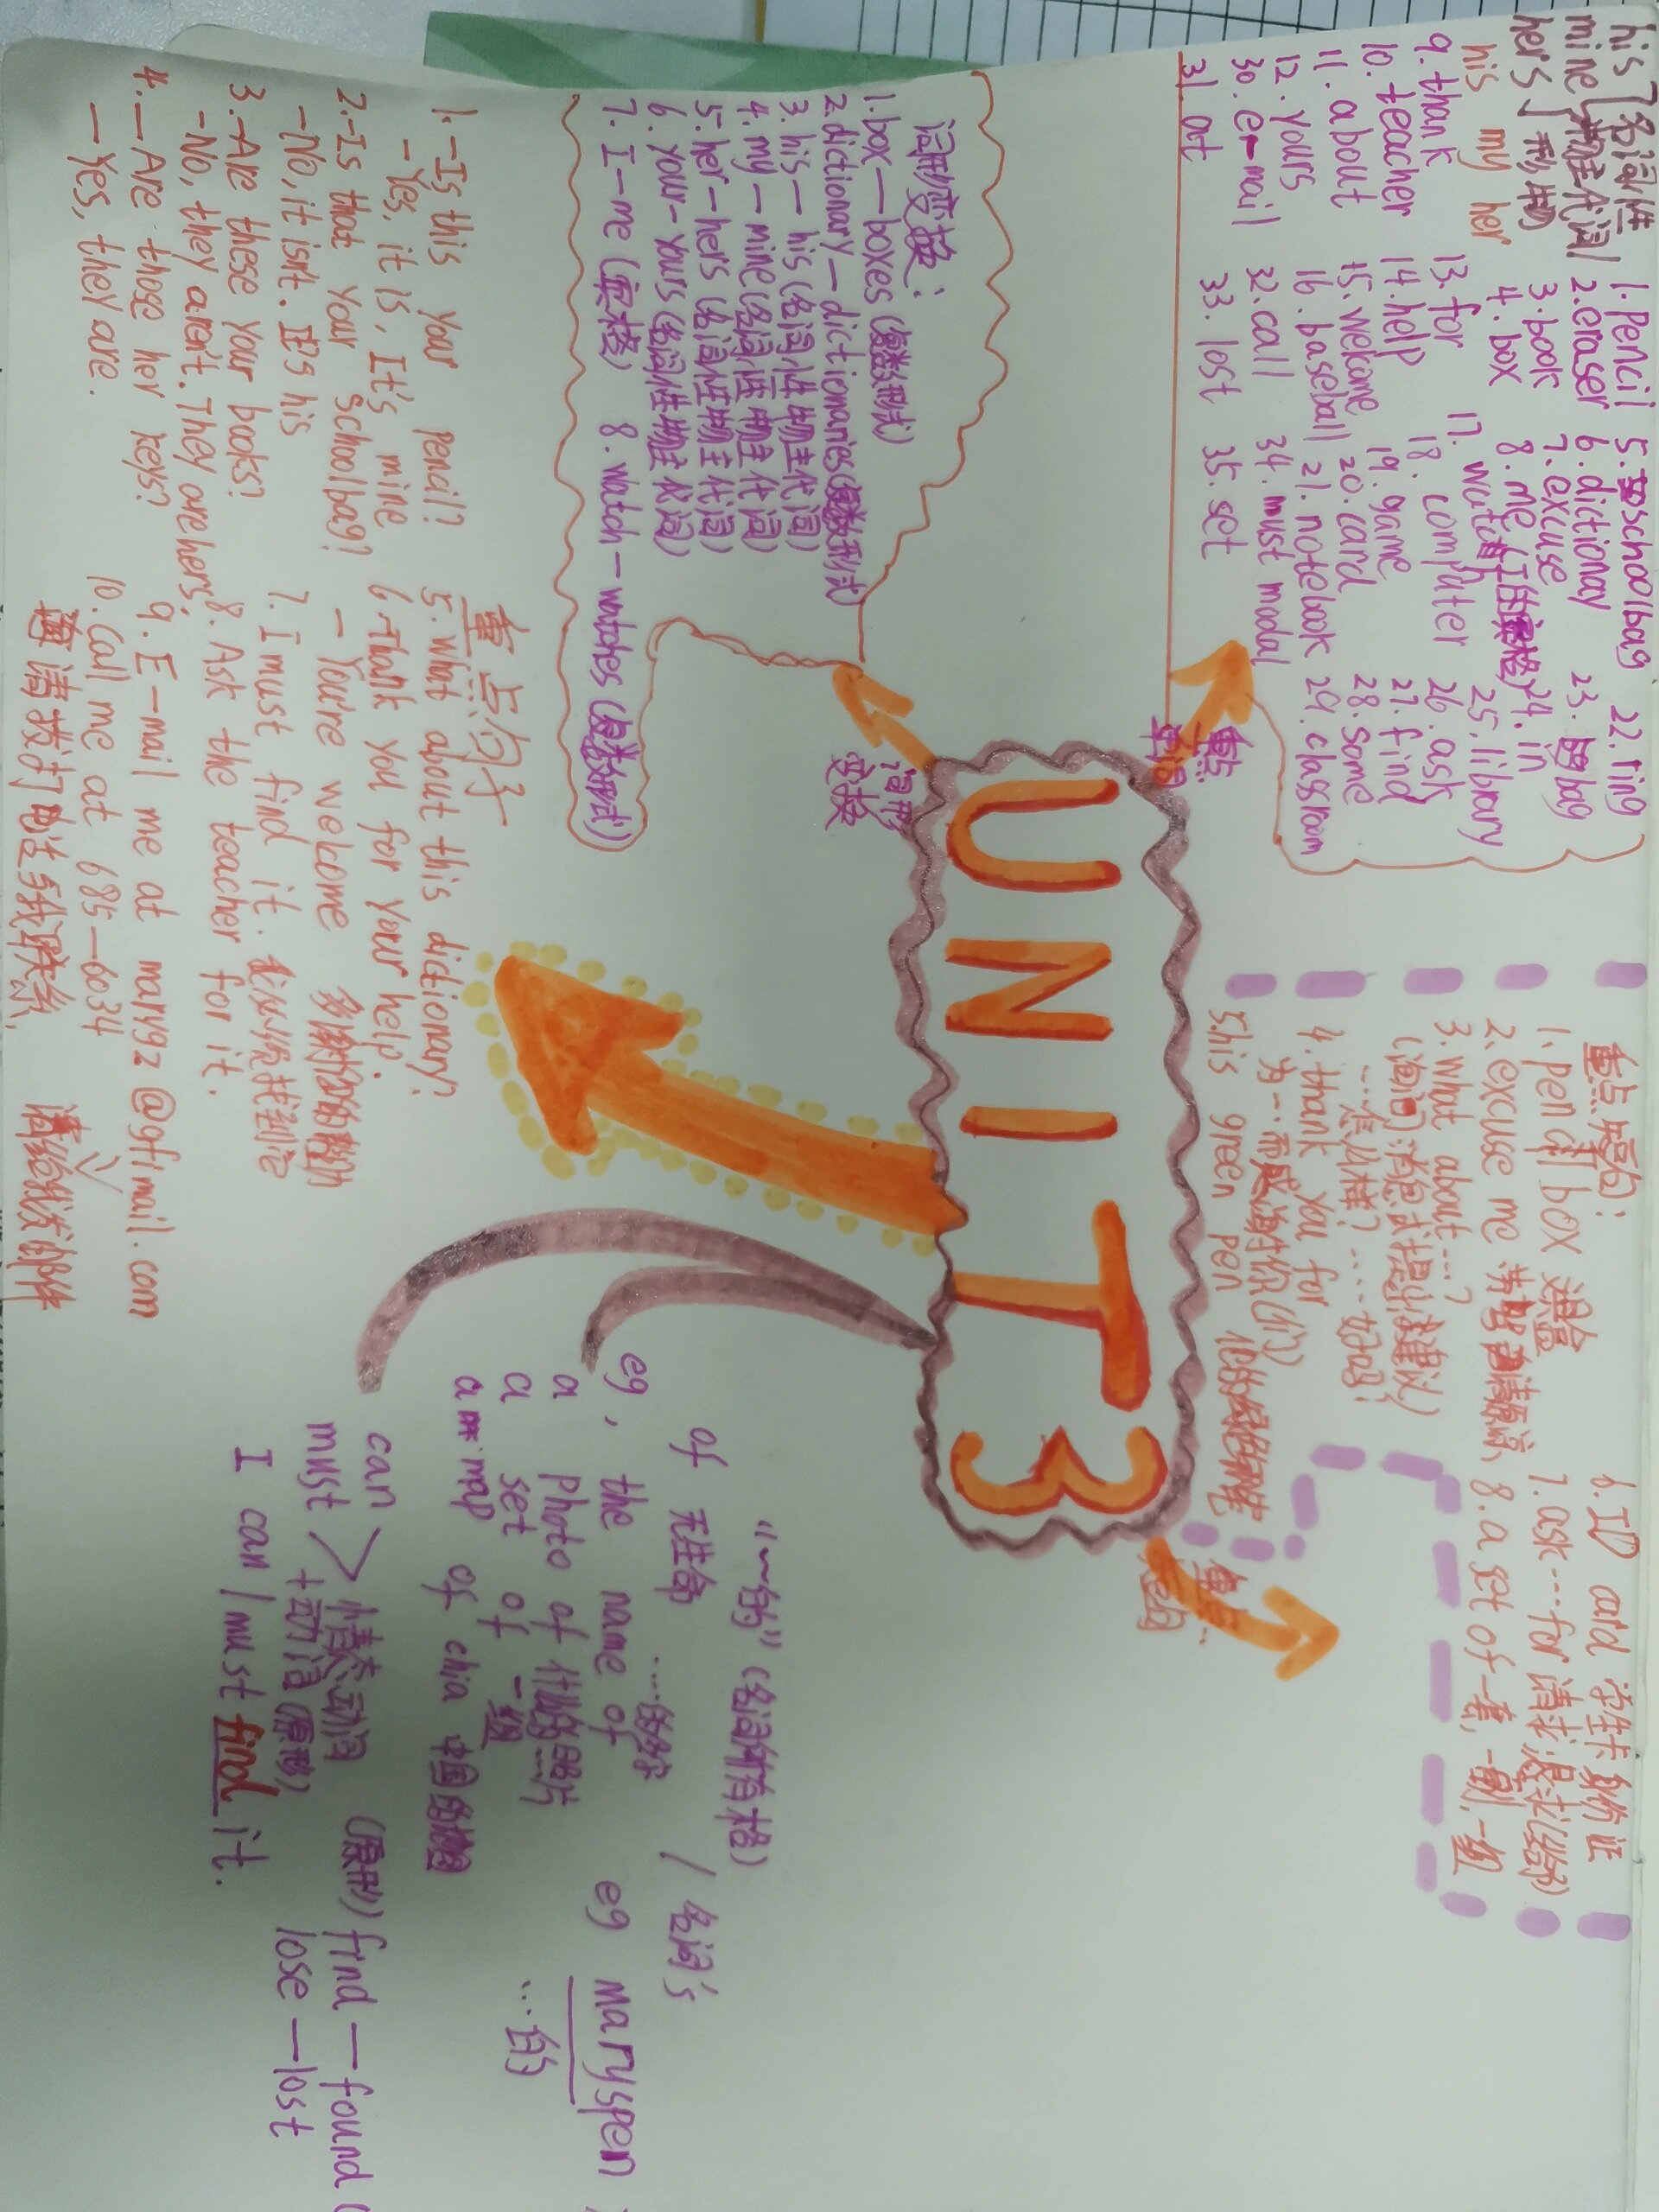 his
mine
hers
名词性
物主代词
his my her 形物
1. pencil
2. eraser
3. book
4. box
5. schoolbag
6. dictionay
7. excuse
8. me (I的宾格)
9. thank
10. teacher
11. about
12. yours
13. for
14. help
15. welcome
16. baseball
17. watch
18. computer
19. game
20. card
21. notebook
22. ring
23. bag
24. in
25. library
26. ask
27. find
28. some
29. classroom
30. e-mail
31 at
32. call
33. lost
34. must modal
35. set
重点
单词
重点短句:
1. pencil box 铅笔盒
2. excuse me 劳驾 请原谅
3. what about ...?
(询问消息或提出建议)
...怎么样? ....好吗?
4. thank you for
为...而感谢你(们)
5. his green pen 他的绿色钢笔
6. ID card 学生卡 身份证
7. ask ... for 请求,恳求(给予)
8. a set of 一套,一副,一组
重点
短句
UNIT3
词形
变换
词形变换:
1. box — boxes (复数形式)
2. dictionary — dictionaries (复数形式)
3. his — his (名词性物主代词)
4. my — mine (名词性物主代词)
5. her — hers (名词性物主代词)
6. your - yours (名词性物主代词)
7. I — me (宾格) 8. watch — watches (复数形式)
重点句子
1. -Is this your pencil?
-Yes, it is. It's mine
2. -Is that your schoolbag?
-No, it isn't. It's his
3. -Are these your books?
-No, they aren't. They are hers.
4. — Are those her keys?
— Yes, they are.
5. what about this dictionary?
6. -Thank you for your help.
- You're welcome
7. I must find it. 我必须找到它
8. Ask the teacher for it.
9. E-mail me at marygz@gfimail.com
10. Call me at 685-6034
"~的" (名词所有格)
of 无生命 / 名词's
eg, the name of ...名字
a photo of 他的照片
a set of 一组
a map of chia 中国的地图
eg maryspen
...的
can
must > 情态动词
+动词(原形)
I can / must find it.
(原形) find — found (
lose — lost